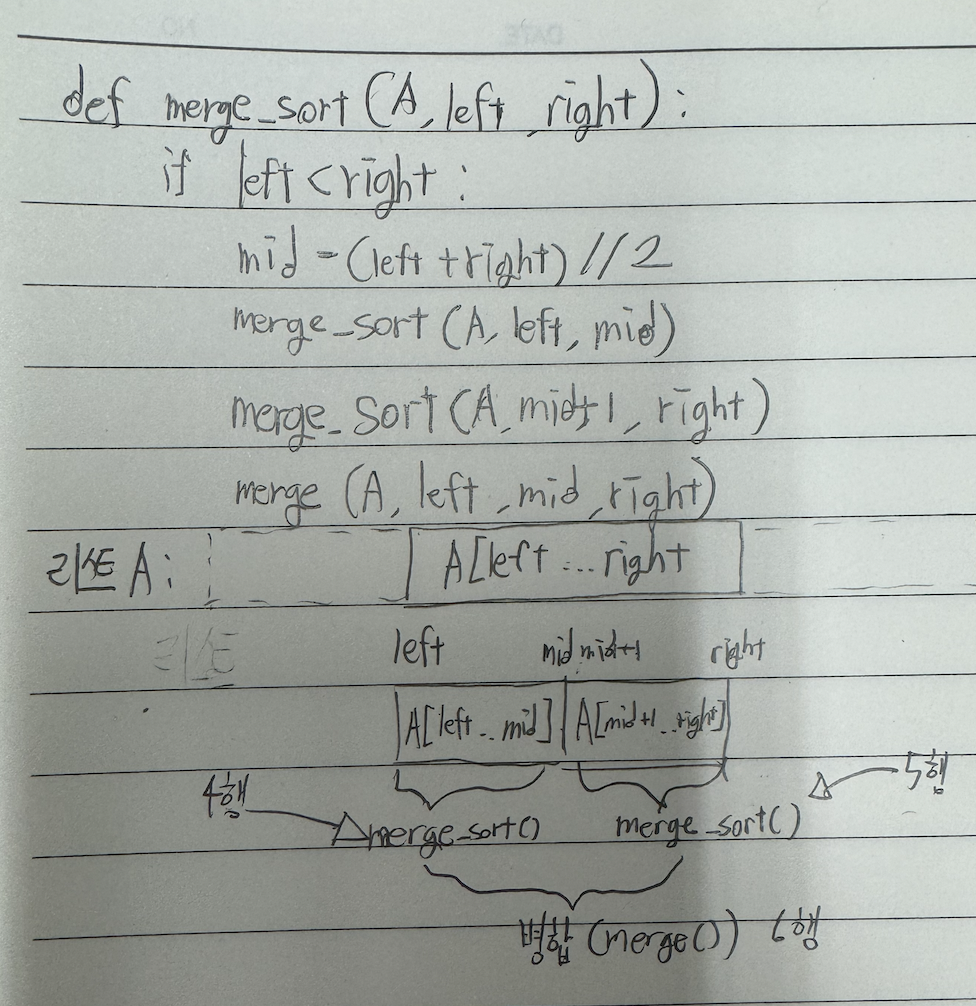 def merge_sort(A, left, right):
if left < right:
mid = (left + right) // 2
merge_sort(A, left, mid)
merge_sort(A, mid+1, right)
merge(A, left, mid, right)
리스트 A: A[left ... right
리스트 left mid mid+1 right
A[left .. mid] A[mid+1 .. right]
4행 5행
merge_sort() merge_sort()
병합(merge()) 6행